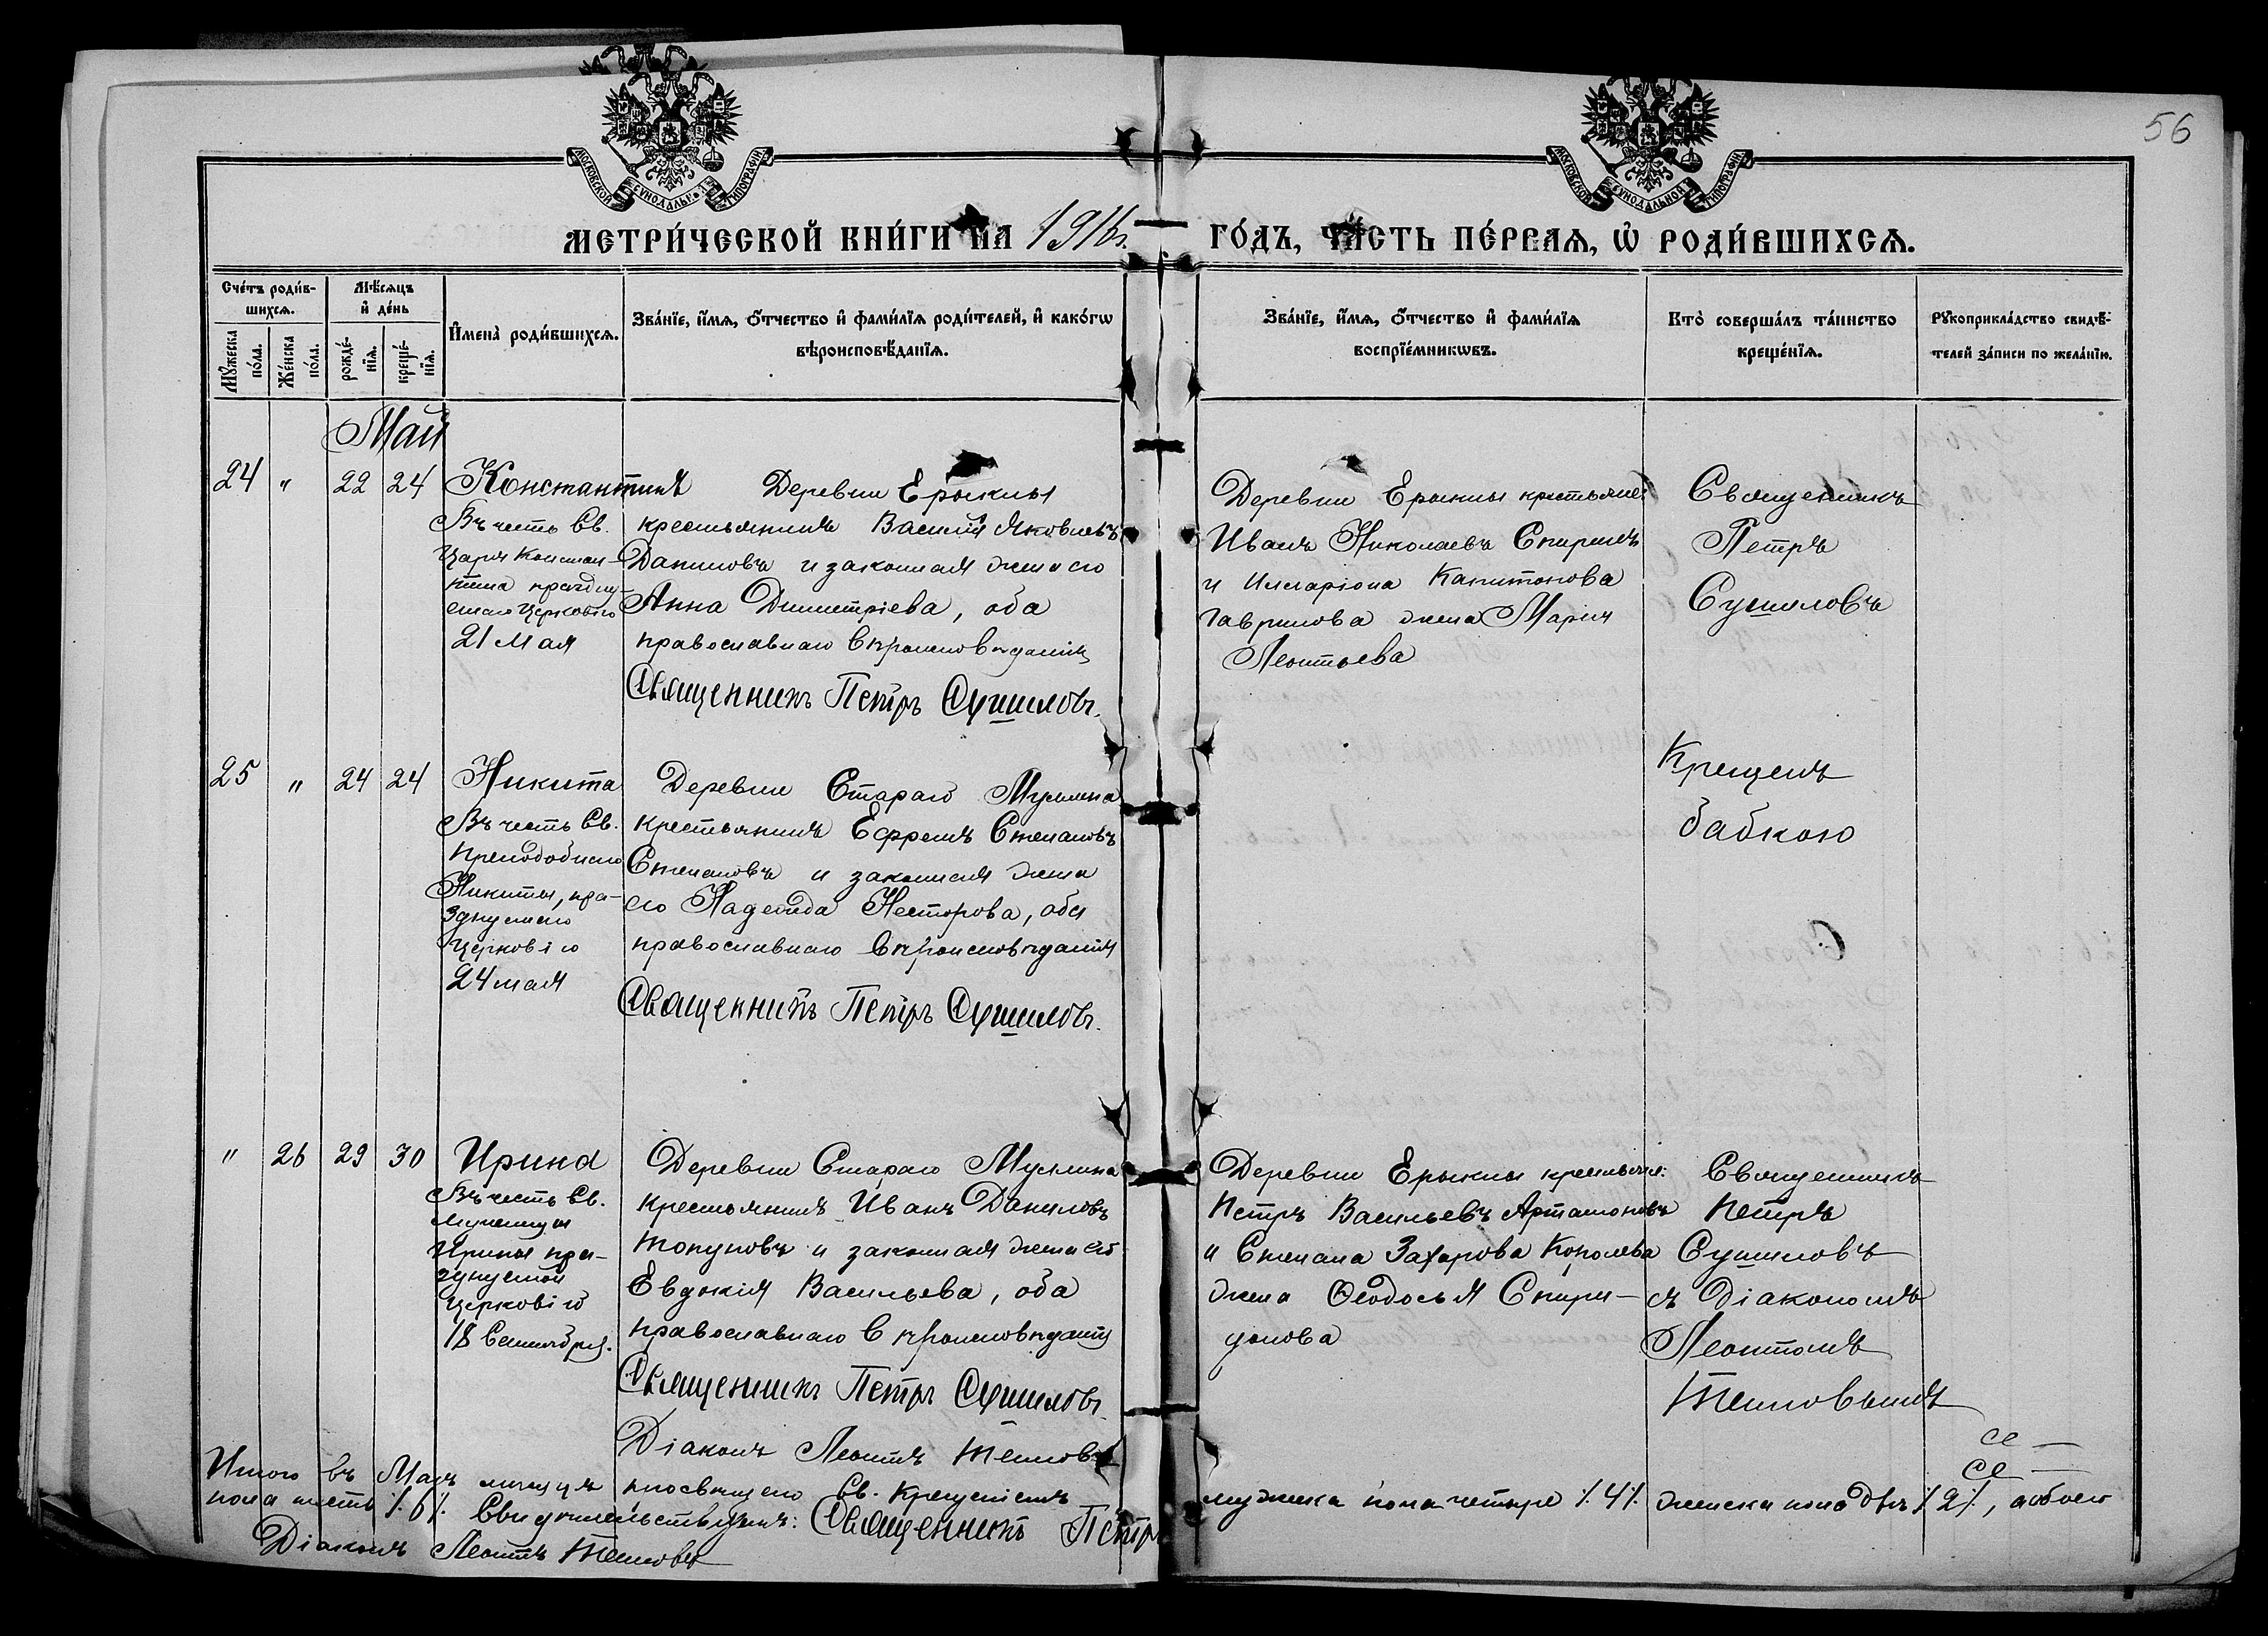 56
МОСКОВСКОЙ СУНОДАЛЬНОЙ ТИПОГРАФІИ
МОСКОВСКОЙ СУНОДАЛЬНОЙ ТИПОГРАФІИ
МЕТРИ́ЧЕСКОЙ КНИ́ГИ НА 1916 г. ГО́ДЪ, ЧА́СТЬ ПЕ́РВАЯ, Ѡ҆ РОДИ́ВШИХСЯ.
Сче́тъ роди́в-
шихся.
Му́жеска по́ла.
Же́нска по́ла.
Мѣ́сяцъ
и҆ де́нь
рожде́-
нїя.
креще́-
нїя.
И҆мена̀ роди́вшихся.
Зва́нїе, и҆́мя, ѻ҆́тчество и҆ фами́лїя роди́телей, и҆ како́гѡ
вѣроисповѣ́данїя.
Зва́нїе, и҆́мя, ѻ҆́тчество и҆ фами́лїя
воспрїе́мникѡвъ.
Кто̀ соверша́лъ та́инство
креще́нїя.
Рꙋкоприкла́дство свидѣ́-
телей за́писи по жела́нїю.
Май
24 " 22 24 Константинъ
Въ честь Св.
Царя Констан-
тина праздну-
емаго Церковію
21 Мая
Деревни Ерыкли
крестьянинъ Василій Яковлевъ
Даниловъ и законная жена его
Анна Димитріева, оба
православнаго вѣроисповѣданія
Священникъ Петръ Сушиловъ.
Деревни Ерыклы крестьяне:
Иванъ Николаевъ Спиринъ
и Илларіона Капитонова
Гаврилова жена Марія
Леонтьева
Священникъ
Петръ
Сушиловъ
25 " 24 24 Никита
Въ честь Св.
Преподобнаго
Никиты, пра-
зднуемаго
Церковію
24 мая
Деревни Стараго Муслина
крестьянинъ Ефремъ Степановъ
Степановъ и законная жена
его Надежда Несторова, оба
православнаго вѣроисповѣданія
Священникъ Петръ Сушиловъ.
Крещенъ
бабкою
" 26 29 30 Ирина
Въ честь Св.
Мученицы
Ирины пра-
зднуемой
Церковію
18 Сентября.
Деревни Стараго Муслина
крестьянинъ Иванъ Даниловъ
и законная жена его
Евдокія Васильева, оба
православнаго вѣроисповѣданія
Священникъ Петръ Сушиловъ.
Діаконъ Леонтій
Деревни Ерыклы крестьяне:
Петръ Васильевъ Артамоновъ
и Степана Захарова Королева
жена Ѳеодосья Спири-
донова
Священникъ
Петръ
Сушиловъ
съ Діакономъ
Леонтіемъ
Итого въ Маѣ мѣсяцѣ просвѣщено Св. Крещеніемъ мужеска пола четыре /.4/. женска пола двѣ /.2/., обоего
пола шесть /.6/. Свидѣтельствуемъ: Священникъ Петръ
Діаконъ Леонтій